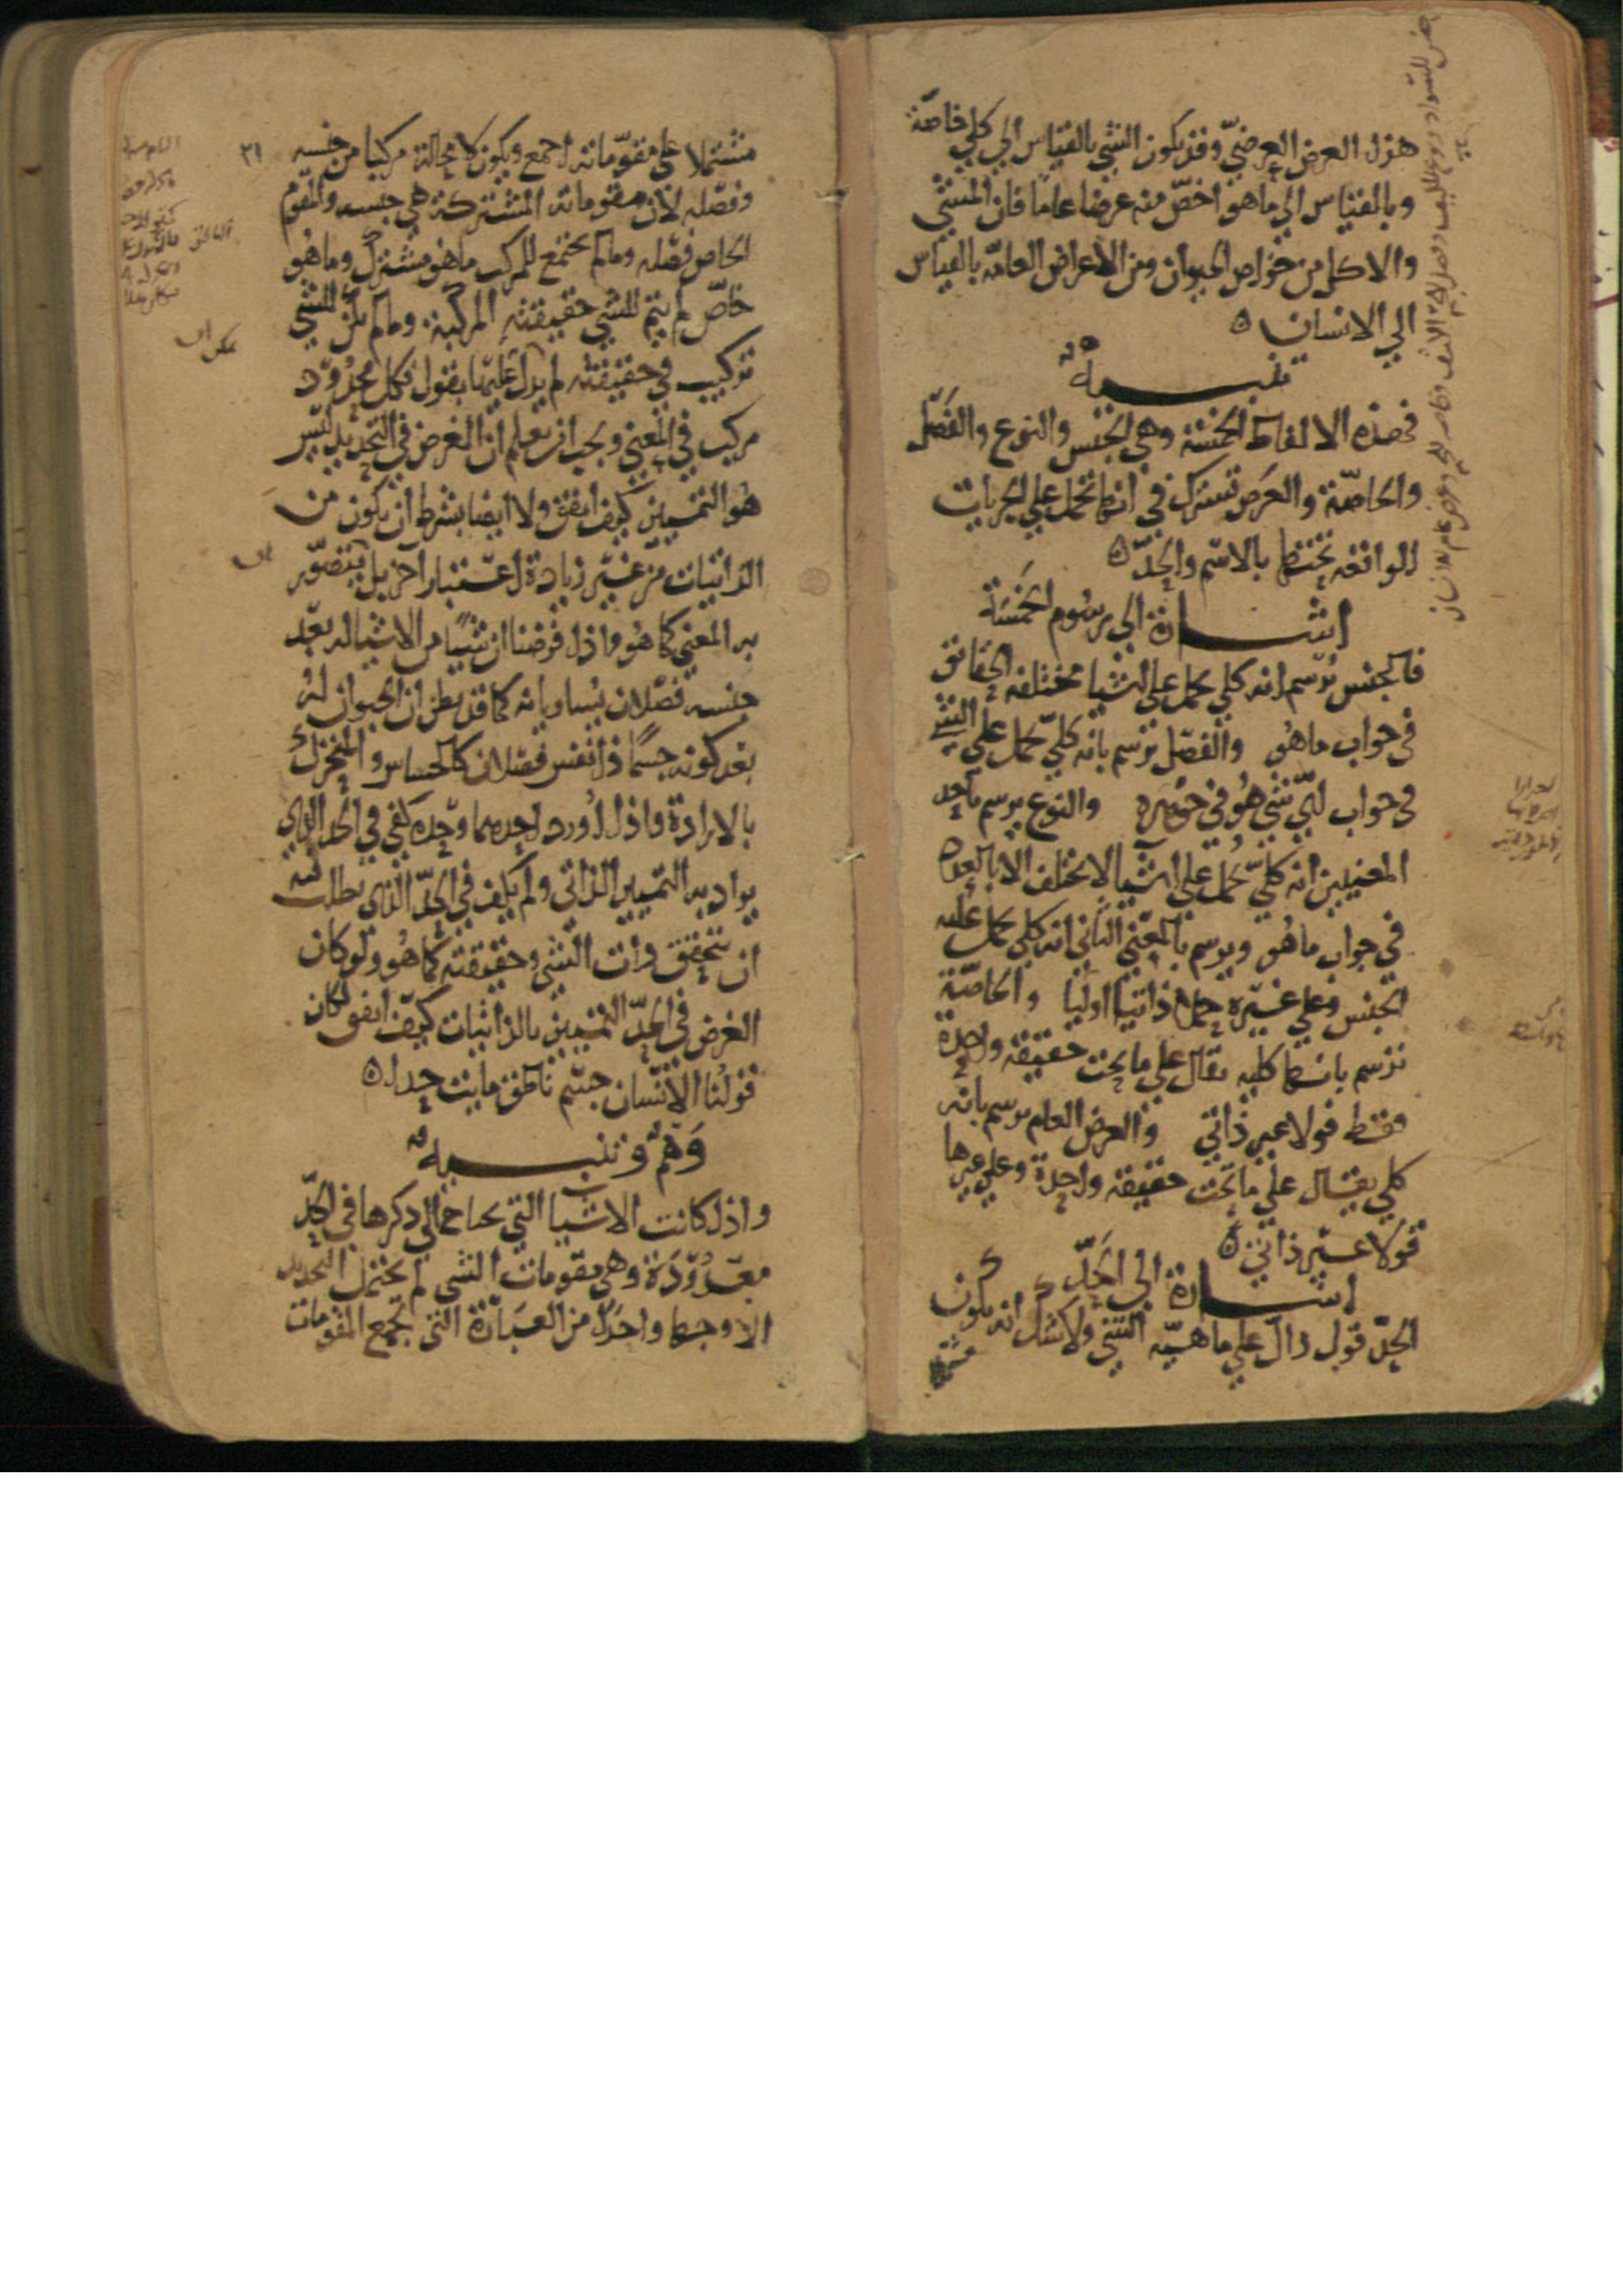 هذا العرض العرضيّ وقد يكون الشي بالقياس الي كلي خاصّة
وبالقياس الي ما هو اخصّ منه عرضا عاما فان المشي
والاكل من خواص الحيوان ومن الاعراض العامّه بالقياس
الي الانسان ه
تنبيه
فهذه الالفاظ الخمسة وهي الجنس والنوع والفصل
والخاصّة والعرض تشترك في انها تحمل علي الجزيات
الواقعه تحتها بالاسم والحدّ ه
اشارة الي رسوم الخمسة
فالجنس يُرسم انه كلي يحمل علي اشيا مختلفه الحقائق
في جواب ما هُو والفصل يرسم بانه كليّ يحمل علي الشي
في جواب ايّ شي هُو في جوهره والنوع يرسم باحد
المعنيين انه كليّ يحمل علي اشيا لا تختلف الا بالعدد
في جواب ما هُو ويرسم بالمعني الثاني انه كلي يحمل عليه
الجنس وعلي غيره حملا ذاتيا اوليا والخاصّة
ترسم بانها كليه تقال علي ما تحت حقيقه واحدة
فقط قولا غير ذاتي والعرض العام يرسم بانه
كلي يقال علي ما تحت حقيقه واحدة وعلي غيرها
قولا غير ذاتي ه
اشارة الي الحدّ
الحدّ قول دالّ علي ماهيّه الشي ولا شك انه يكون
مشتملا علي مقوّماته اجمع ويكون لا محالة مركبا من جنسه ٢١
وفصله لان مقوماته المشتركة هي جنسه والمقوّم
الخاص فصله وما لم يجتمع للمركب ما هو مشترك وما هُو
خاصّ لم يتم للشي حقيقته المركبة وما لم يكن للشي
تركيب في حقيقته لم يدلّ عليها بقول فكل محدُودٍ
مركب في المعني ويجب ان يعلم ان الغرض في التحديد ليس
هُو التمييز كيف اتفق ولا ايضا بشرط ان يكون من
الذاتيات من غير زيادة اعتبار اخر بل يتصوّر
به المعني كما هُو واذا فرضنا ان شيئا من الاشيا له بعد
جنسه فصلان يُساويانه كما قد يظن ان الحيوان له
بعد كونه جسمًا ذا نفس فصلان كالحساس والمتحرك
بالارادة فاذا اُورد احدهما وحده كفي في الحد الذي
يراد به التمييز الذاتي ولم يكف في الحدّ الذي يطلب فيه
ان يتحقق ذات الشي وحقيقته كما هُو ولو كان
الغرض في الحدّ التمييز بالذاتيات كيف اتفق لكان
قولُنا الانسان جسم ناطق مايت حدا ه
وَهْمٌ وتنبيه
واذا كانت الاشيا التي يحتاج الي ذكرها في الحدّ
معدُودَة وهي مقومات الشي لم يحتمل التحديد
الا وجها واحدا من العبارة التي تجمع المقومات